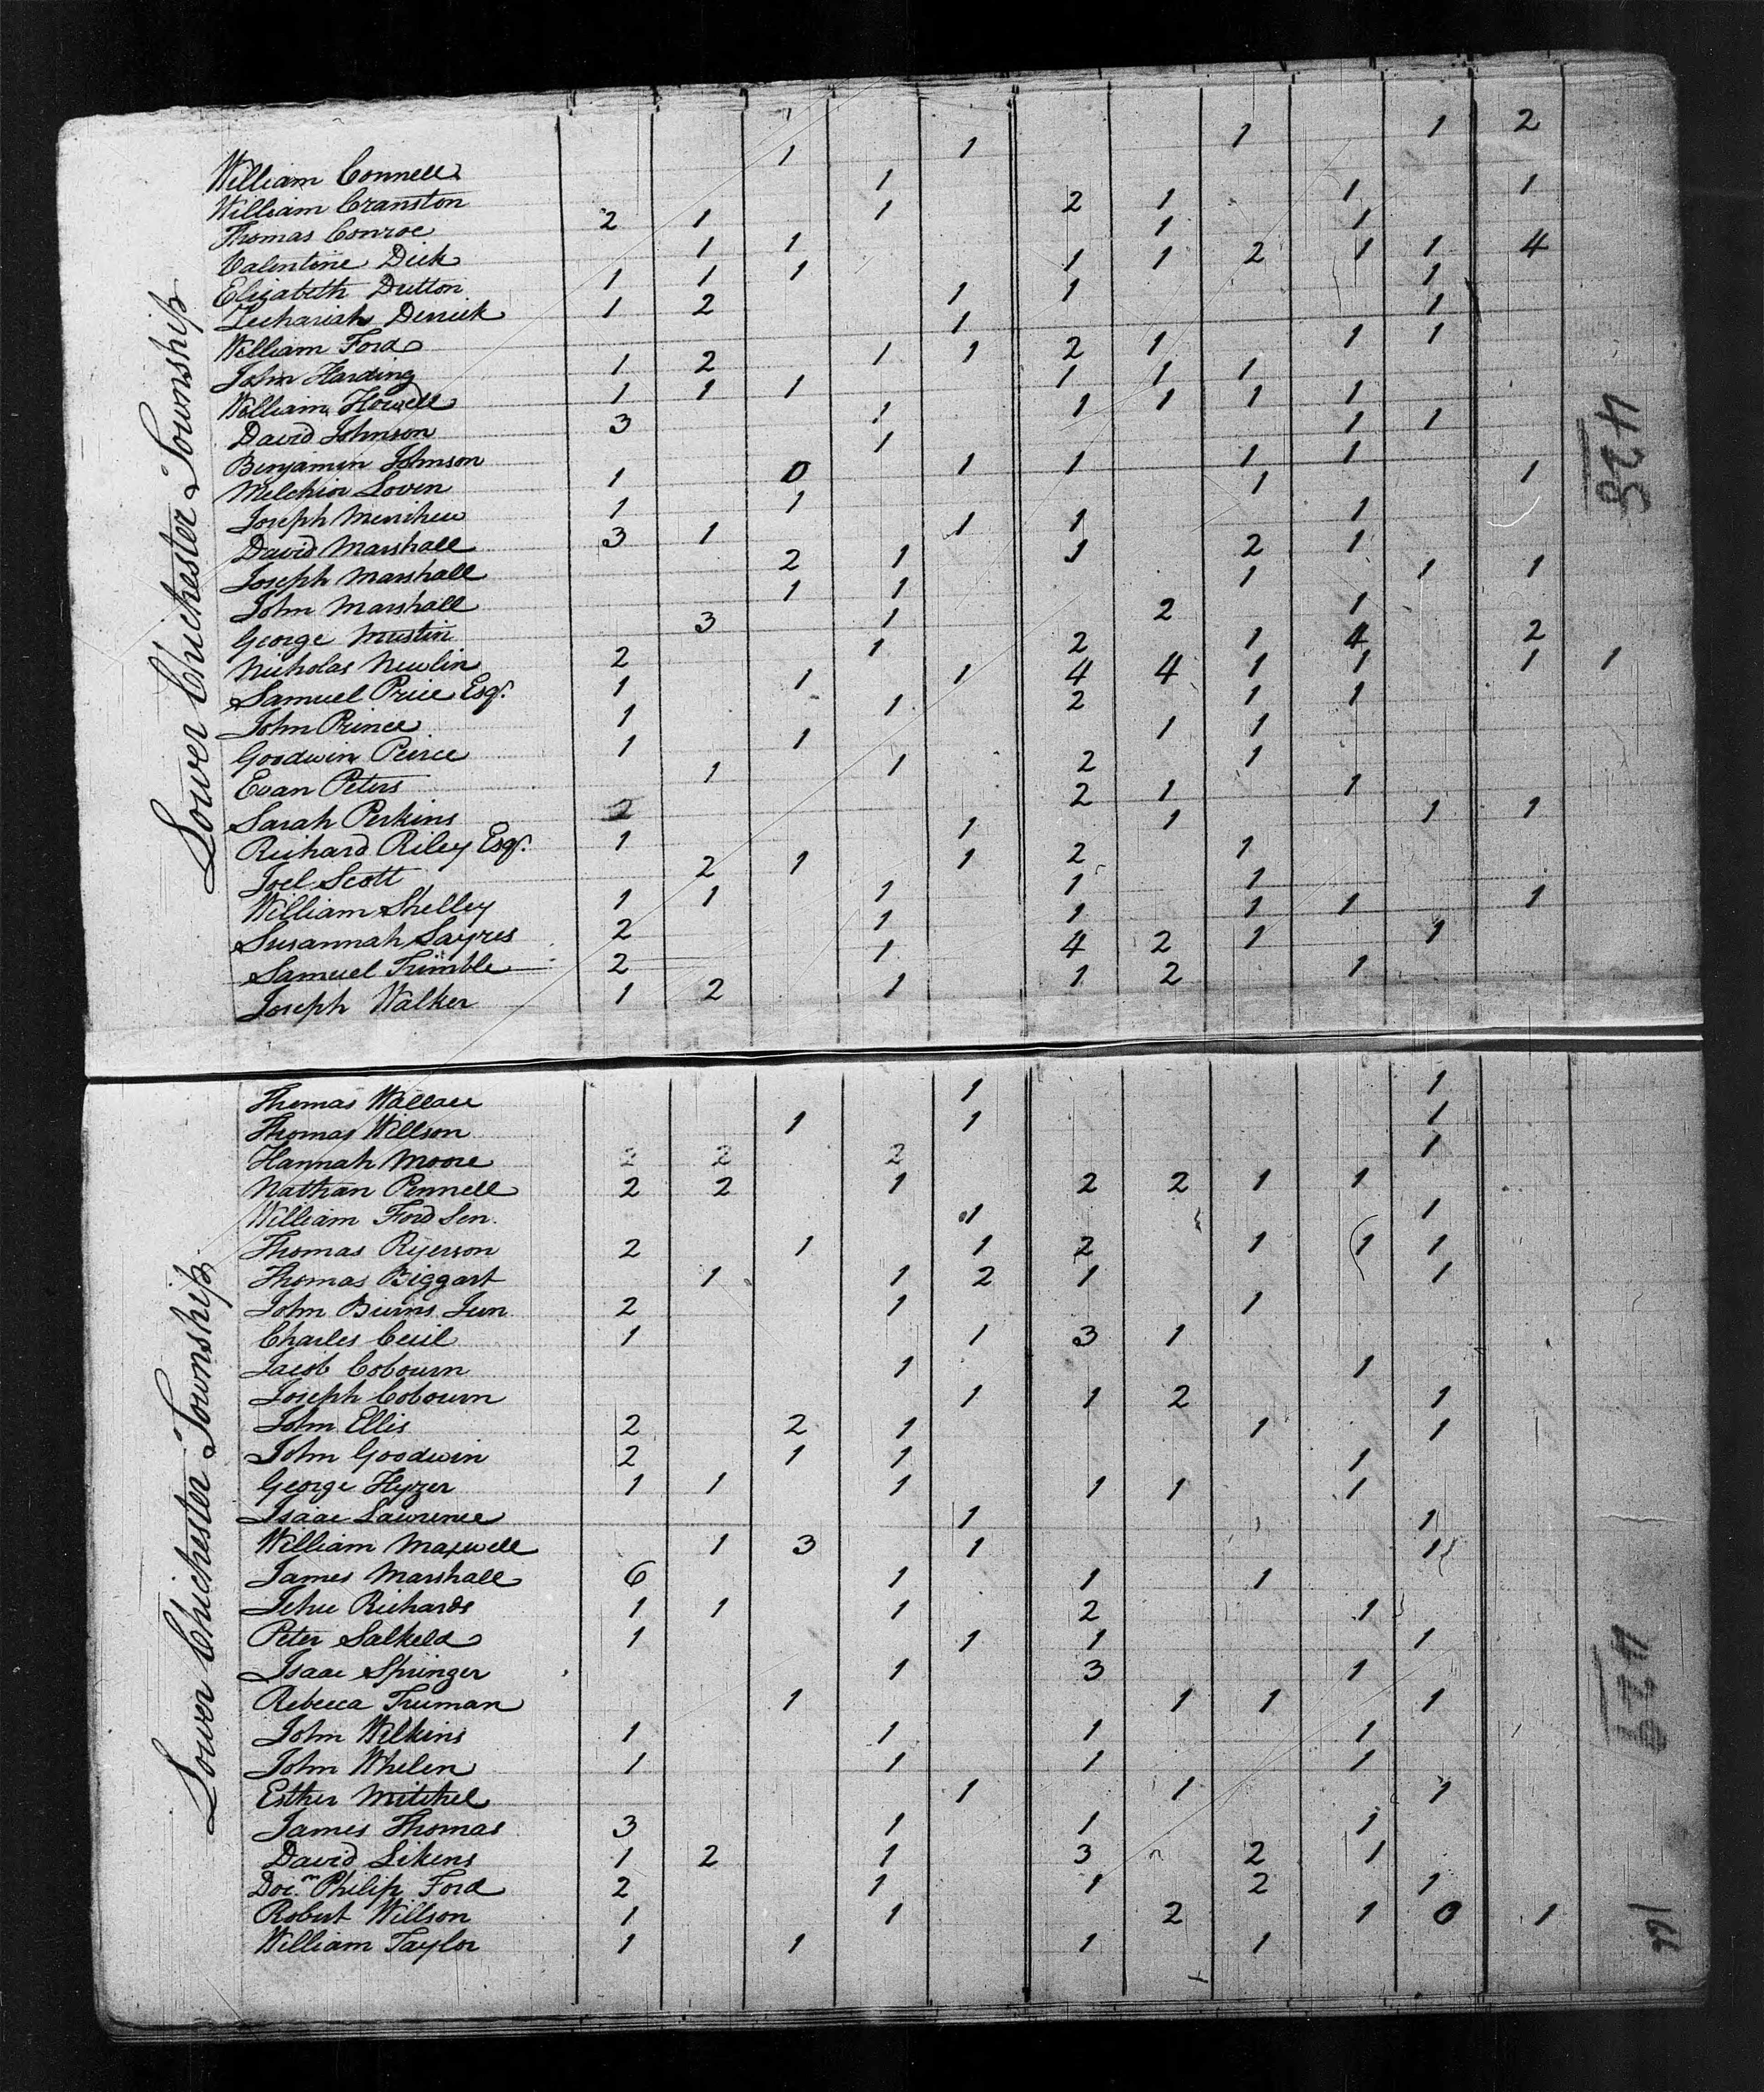 Lower Chichester Township
William Connell 1 1 1 1 2
William Cranston 1
Thomas Conroe 2 1 1 2 1 1 1
Valentine Dick 1 1 1 1
Elizabeth Dutton 1 1 1 1 1 2 1 1 4
Zechariah Derrick 1 2 1 1 1
William Ford 1 1
John Harding 1 2 1 1 2 1 1 1
William Howell 1 1 1 1 1 1
David Johnson 3 1 1 1 1 1
Benjamin Johnson 1 1 1
Melchior Loven 1 0 1 1 1 1
Joseph Merrihew 1 1 1 1
David Marshall 3 1 1 1 1
Joseph Marshall 2 1 1 2 1
John Marshall 1 1 1 1 1
George Mustin 3 1 2 1
Nicholas Newlin 2 1 2 1 4 2
Samuel Price Esqr. 1 1 1 4 4 1 1 1 1
John Prince 1 1 2 1 1
Goodwin Peirce 1 1 1 1
Evan Peters 1 1 2 1
Sarah Perkins 2 2 1 1
Richard Riley Esqr. 1 1 1 1 1
Joel Scott 2 1 1 2 1
William Shelley 1 1 1 1 1
Susannah Sayres 2 1 1 1 1 1
Samuel Trimble 2 1 4 2 1 1
Joseph Walker 1 2 1 1 2 1
428
Lower Chichester Township
Thomas Wallace 1 1
Thomas Willson 1 1 1
Hannah Moore 2 2 2 1
Nathan Pennell 2 2 1 2 2 1 1
William Ford Sen. 1 1
Thomas Ryerson 2 1 1 2 1 1 1
Thomas Biggart 1 1 2 1 1
John Burns Jun 2 1 1
Charles Cecil 1 1 3 1
Jacob Cobourn 1 1
Joseph Cobourn 1 1 2 1
John Ellis 2 2 1 1 1
John Goodwin 2 1 1 1
George Hyzer 1 1 1 1 1 1
Isaac Lawrence 1 1
William Maxwell 1 3 1 1
James Marshall 6 1 1 1
Jehu Richards 1 1 1 2 1
Peter Salkeld 1 1 1 1
Isaac Springer 1 3 1
Rebecca Truman 1 1 1 1
John Wilkins 1 1 1 1
John Whelen 1 1 1 1
Esther Mitchel 1 1 1
James Thomas 3 1 1 1
David Likens 1 2 1 3 2 1
Docr. Philip Ford 2 1 1 2 1
Robert Willson 1 1 2 1 0 1
William Taylor 1 1 1 1